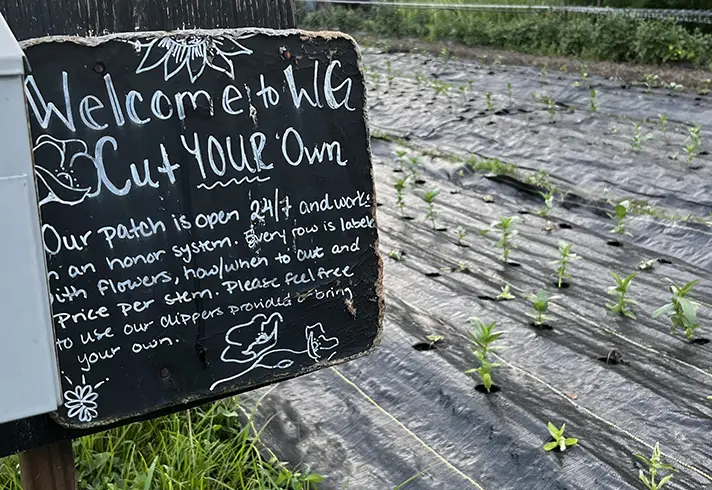 Welcome to WG
Cut YOUR Own
Our patch is open 24/7 and works
n an honor system. Every row is labele
ith flowers, how/when to cut and
Price per stem. Please feel free
to use our clippers provided or bring
your own.